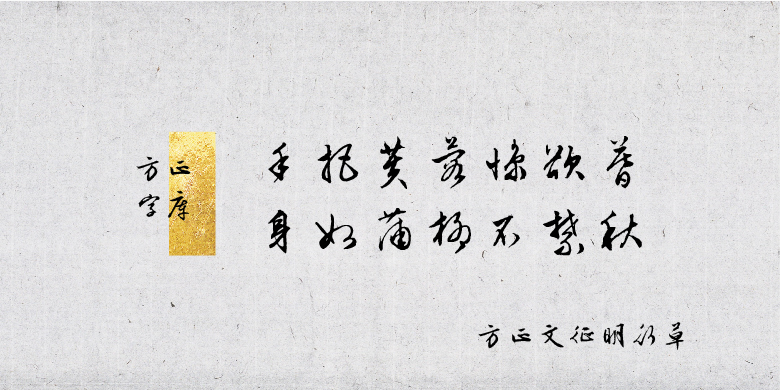 方正
字库
手把芙蓉惨欲暮
身如蒲柳不禁秋
方正文征明行草